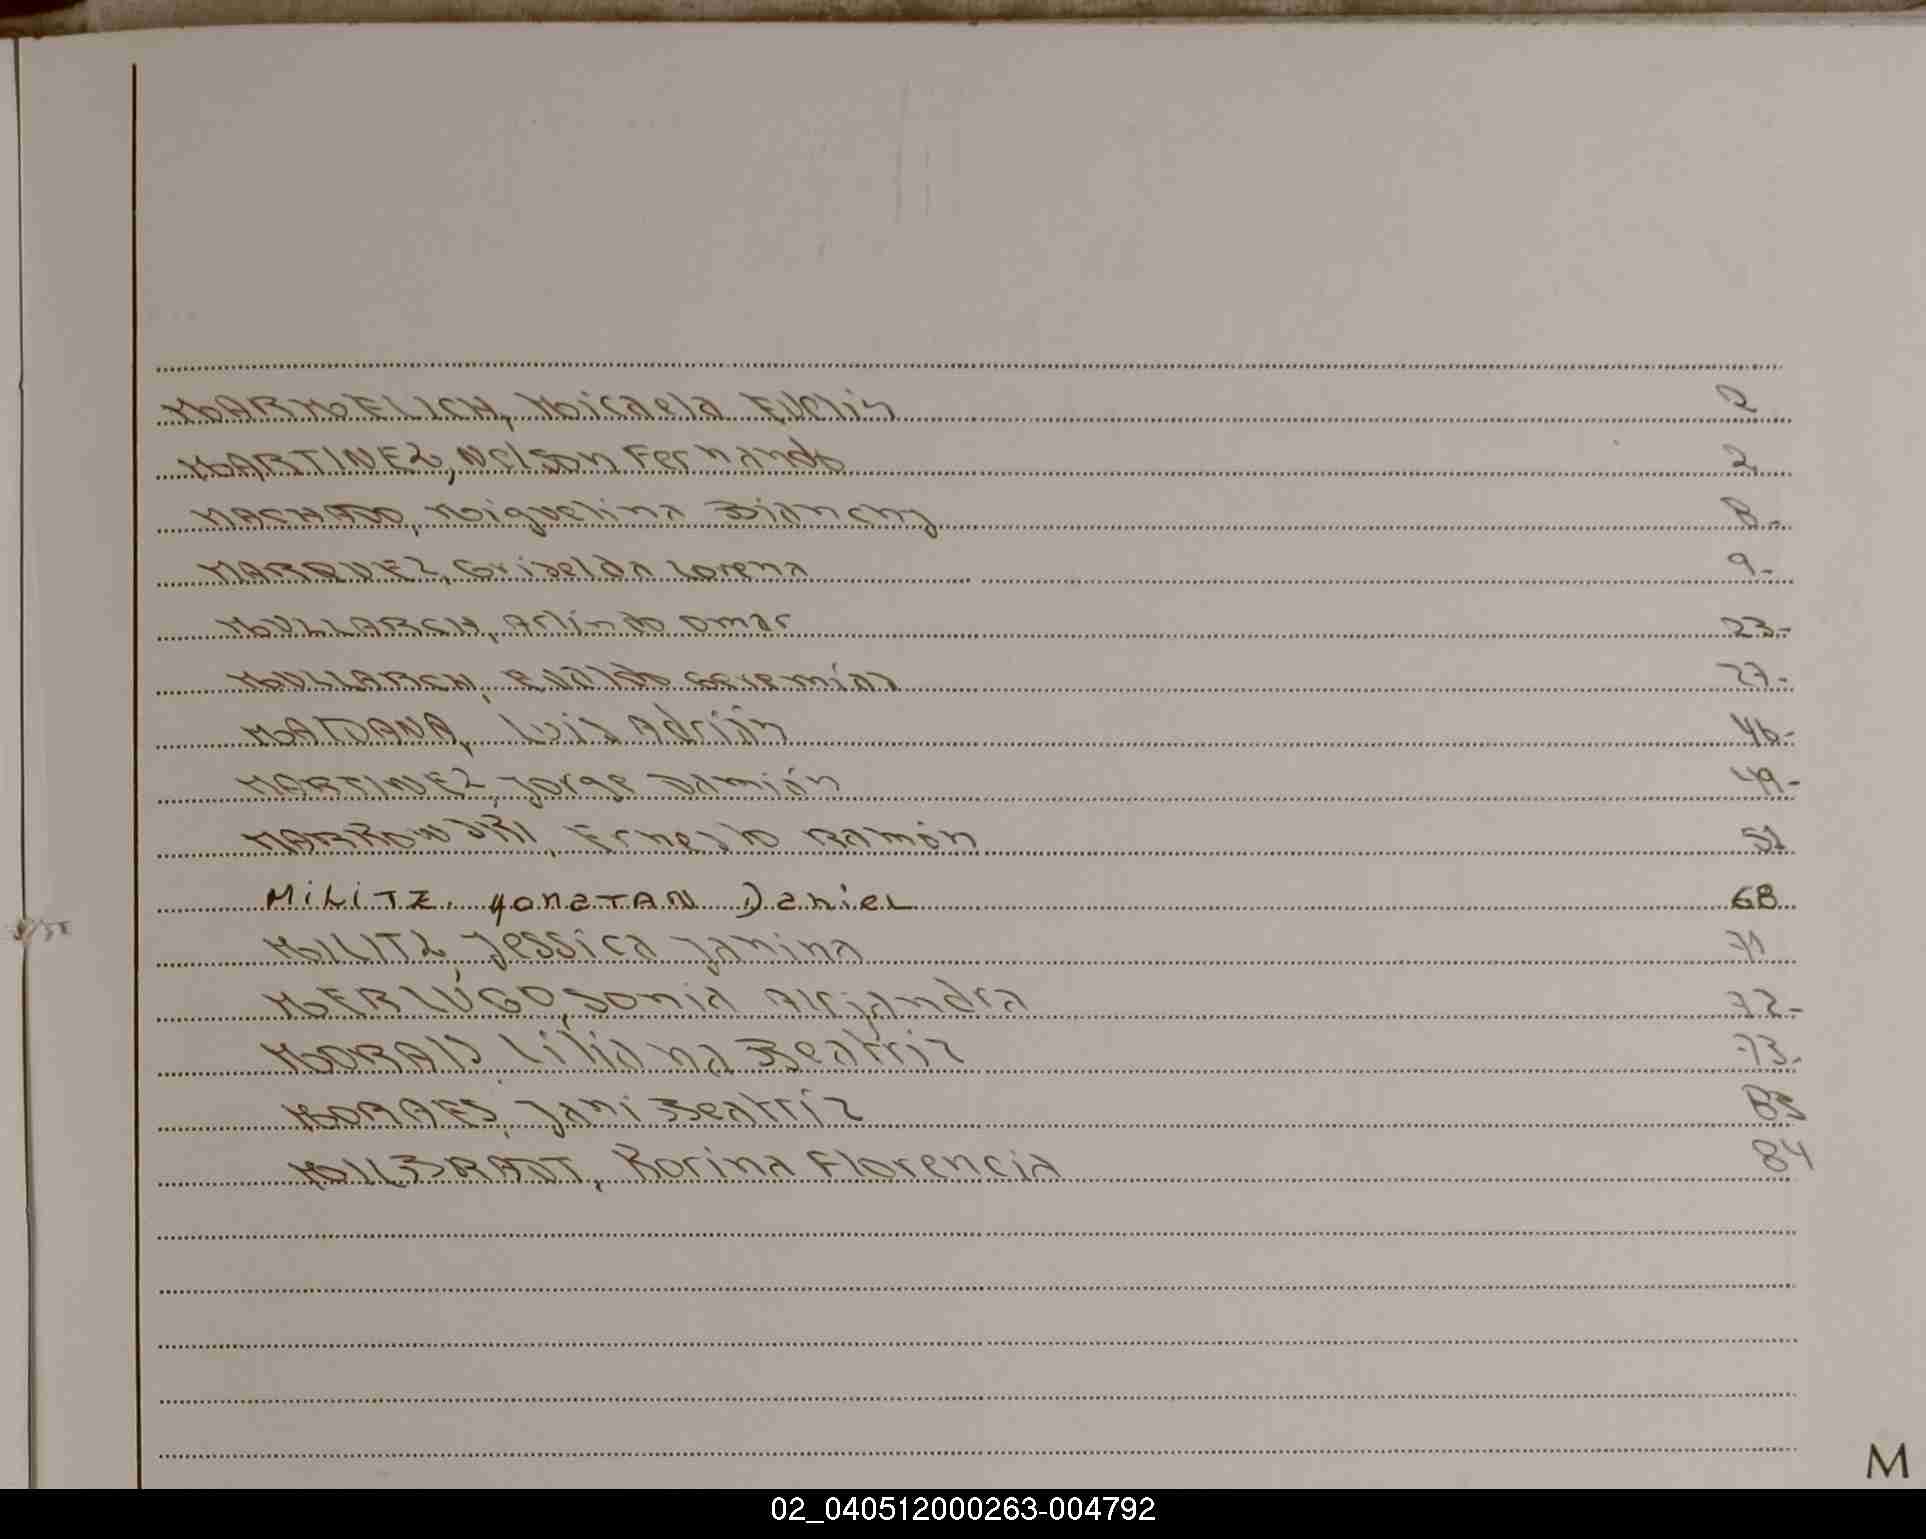 MARMELICH, Micaela Evelin 2
MARTINEZ, Nelson Fernando 2
MACHADO, Miguelina Bianchy 8.-
MARQUEZ, Griselda Lorena 9-
MULLARCH, Arlindo Omar 23-
MULLARCH, Evaldo Geremias 27-
MAIDANA, Luis Adrián 46-
MARTINEZ, Jorge Damián 49-
Ernesto Ramón 51
MiLiTZ, YonaTAN DanieL 68
MILITZ, Jessica Janina 71
MERLUGO, Sonia Alejandra 72-
MORAIS Liliana Beatriz 73.
MORAES, Jani Beatriz
Florencia 84
M
02_040512000263-004792